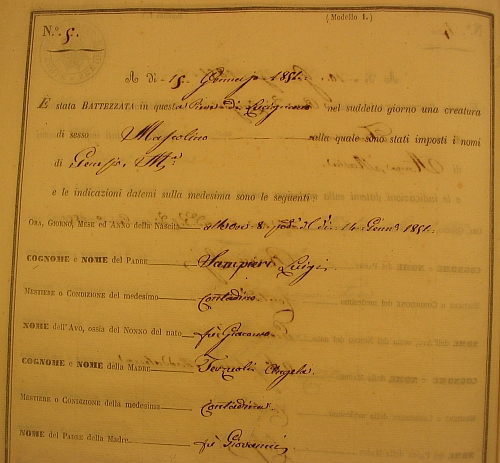 (Modello 1.)
N.º 5.
A dì 15. Gennajo 1851.
È stata BATTEZZATA in questa Pieve di Lucignano nel suddetto giorno una creatura
di sesso Mascolino alla quale sono stati imposti i nomi
di M.ª
e le indicazioni datemi sulla medesima sono le seguenti
ORA, GIORNO, MESE ed ANNO della Nascita alle ore 8. del dì 14. Genn.º 1851.
COGNOME e NOME del PADRE Sampieri Luigi
MESTIERE o CONDIZIONE del medesimo Contadino
NOME dell'Avo, ossia del NONNO del nato fu Giacomo
COGNOME e NOME della MADRE Angela
MESTIERE o CONDIZIONE della medesima Contadina
NOME del PADRE della Madre fu Giovanni